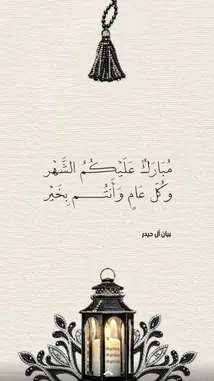 مُبَارَكٌ عَلَيْكُمُ الشَّهْر
وَكُلّ عَامٍ وَأَنتُـــم بِخَيْر
بيان آل حيدر